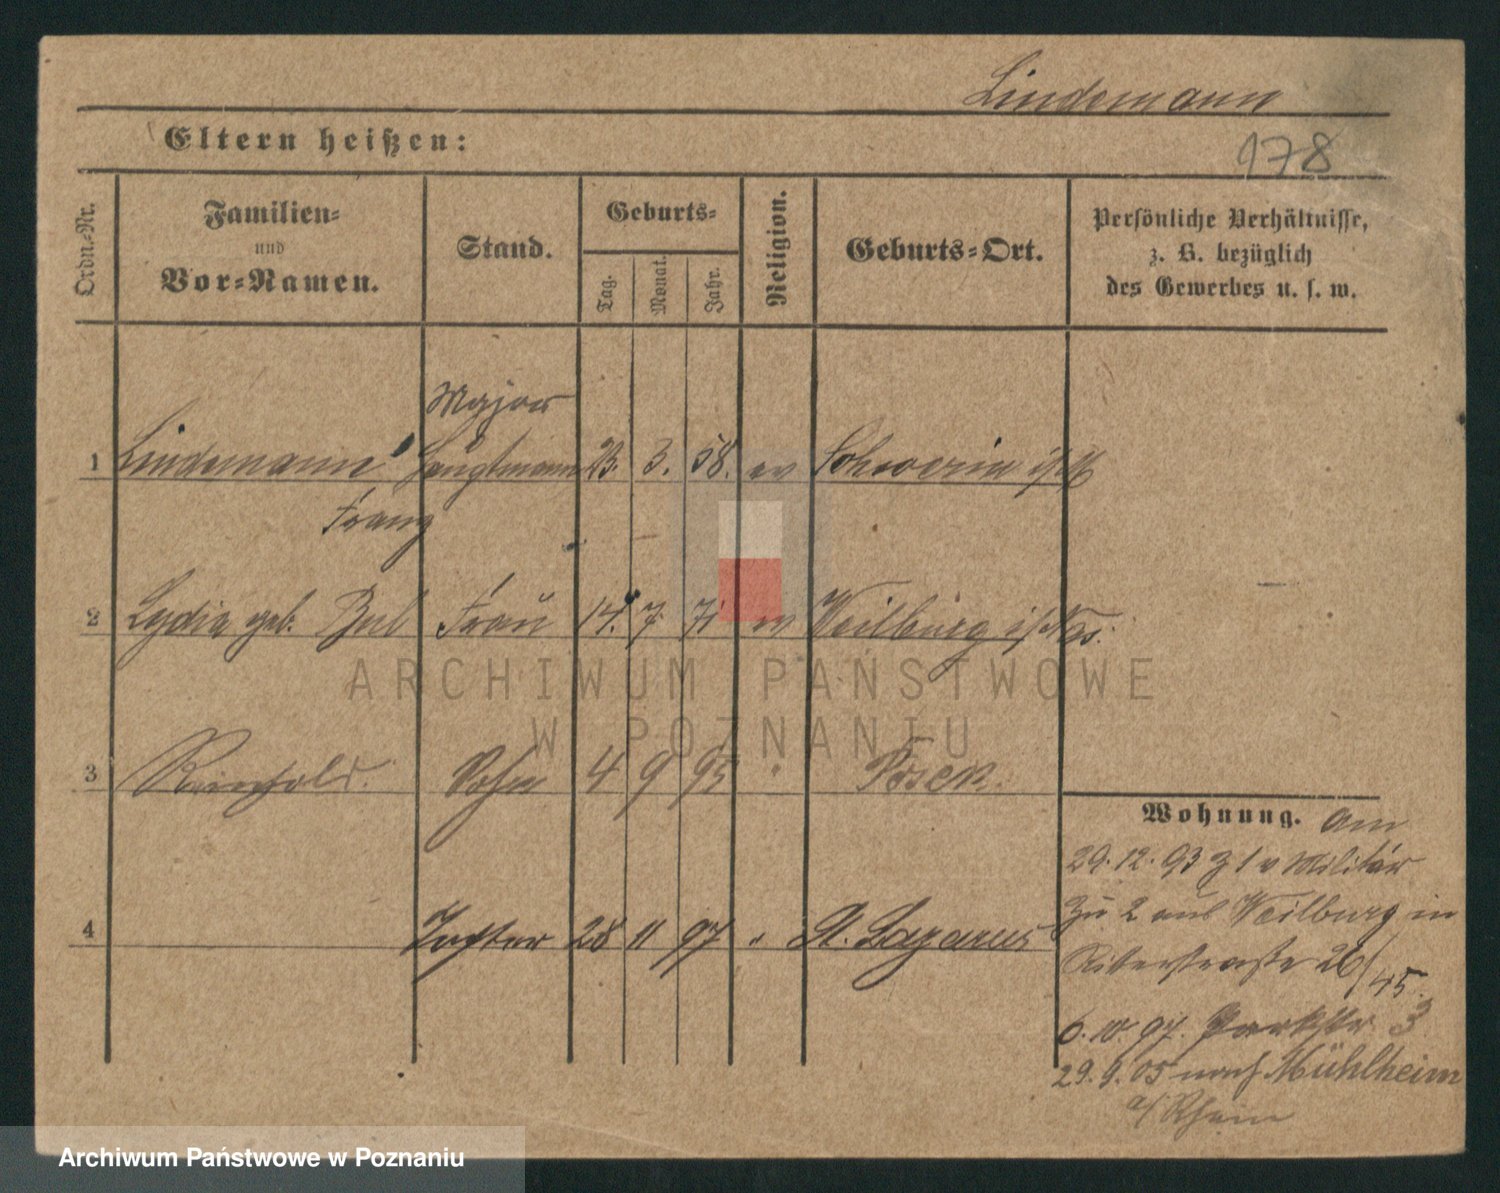 Lindemann
178
Eltern heißen:
Ordn.-Nr.
Familien-
und
Vor-Namen.
Stand.
Geburts-
Tag.
Monat.
Jahr.
Religion.
Geburts-Ort.
Persönliche Verhältnisse,
z. B. bezüglich
des Gewerbes u. s. w.
Major
1 Lindemann Hauptmann 23. 3. 58. ev Schwerin i/M
Franz
2 Lydia geb. Frau 14. 7. 71 ev Weilburg i/Nas.
ARCHIWUM PAŃSTWOWE
W POZNANIU
3 Reinhold. Sohn 4 9 95 " Posen.
Wohnung. am
29. 12. 93 z 1 v Militär
zu 2 aus Weilburg in
Ritterstrasse 26/45.
4 Tochter 28 11 97 " St. Lazarus
6. 10. 97. Parkstr 3
29. 9. 05 nach Mühlheim
a/Rhein
Archiwum Państwowe w Poznaniu